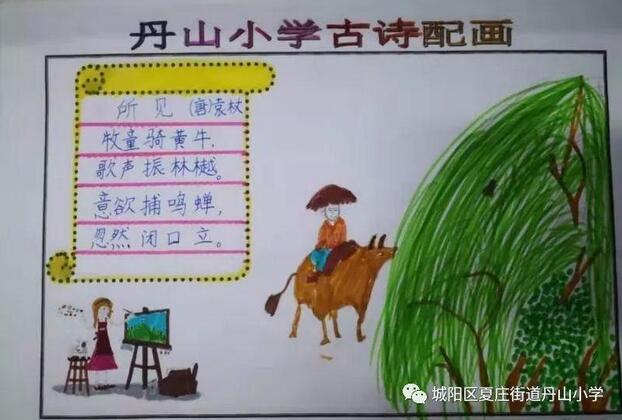 丹山小学古诗配画
所见 (唐)袁枚
牧童骑黄牛,
歌声振林樾。
意欲捕鸣蝉,
忽然闭口立。
城阳区夏庄街道丹山小学